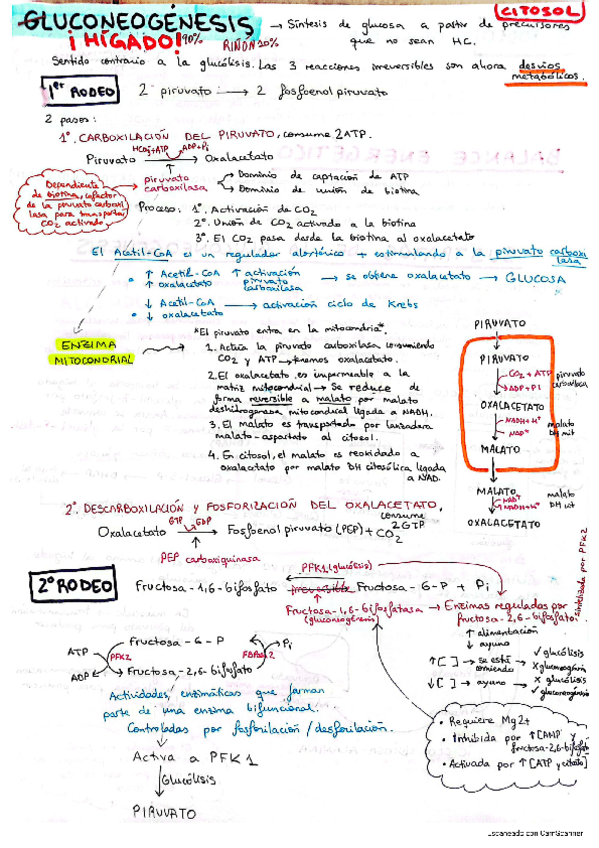 GLUCONEOGÉNESIS → Síntesis de glucosa a partir de precursores que no sean HC.
CITOSOL
¡HÍGADO! 90% RIÑÓN 10%
Sentido contrario a la glucólisis. Las 3 reacciones irreversibles son ahora desvíos metabólicos.
1er RODEO
2 piruvato → 2 fosfoenol piruvato
2 pasos:
1º. CARBOXILACIÓN DEL PIRUVATO, consume 2ATP.
HCO3+ATP ADP+Pi
Piruvato → Oxalacetato
piruvato carboxilasa
→ Dominio de captación de ATP
→ Dominio de unión de biotina
Dependiente de biotina, cofactor de la piruvato carboxilasa para transportar CO2 activado
Proceso: 1º. Activación de CO2
2º. Unión de CO2 activado a la biotina
3º. El CO2 pasa desde la biotina al oxalacetato
El Acetil-CoA es un regulador alostérico + estimulando a la piruvato carboxilasa
• ↑ Acetil-CoA ↑ activación → se obtiene oxalacetato → GLUCOSA
↑ oxalacetato piruvato carboxilasa
• ↓ Acetil-CoA → activación ciclo de Krebs
↓ oxalacetato
ENZIMA MITOCONDRIAL
*El piruvato entra en la mitocondria*.
1. Actúa la piruvato carboxilasa consumiendo
CO2 y ATP → tenemos oxalacetato.
2. El oxalacetato es impermeable a la
matriz mitocondrial → Se reduce de
forma reversible a malato por malato
deshidrogenasa mitocondrial ligada a NADH.
3. El malato es transportado por lanzadera
malato-aspartato al citosol.
4. En citosol, el malato es reoxidado a
oxalacetato por malato DH citosólica ligada
a NAD.
PIRUVATO
PIRUVATO
CO2 + ATP piruvato carboxilasa
ADP + Pi
OXALACETATO
NADH+H+ malato
NAD+ DH mit
MALATO
MALATO
NAD+ malato
NADH+H+ DH cit
OXALACETATO
2º. DESCARBOXILACIÓN y FOSFORIZACIÓN DEL OXALACETATO, consume 2GTP
GTP GDP
Oxalacetato → Fosfoenol piruvato (PEP) + CO2
PEP carboxiquinasa
2º RODEO
PFK1 (glucólisis)
Fructosa-1,6-bifosfato irreversible Fructosa-6-P + Pi
Fructosa-1,6-bifosfatasa → Enzimas reguladas por
(gluconeogénesis) fructosa-2,6-bifosfato:
sintetizada por PFK2
↑ alimentación
↓ ayuno
↑[ ] → se está comiendo ✓ glucólisis
X gluconeogénesis
↓[ ] → ayuno X glucólisis
✓ gluconeogénesis
Fructosa-6-P
ATP PFK2 FBPasa2 Pi
ADP Fructosa-2,6-bifosfato
Actividades enzimáticas que forman
parte de una enzima bifuncional.
Controladas por fosforilación/desforilación.
Activa a PFK1
Glucólisis
PIRUVATO
• Requiere Mg2+
• Inhibida por ↑[AMP] y fructosa-2,6-bifosfato
• Activada por ↑[ATP y citrato]
Escaneado con CamScanner